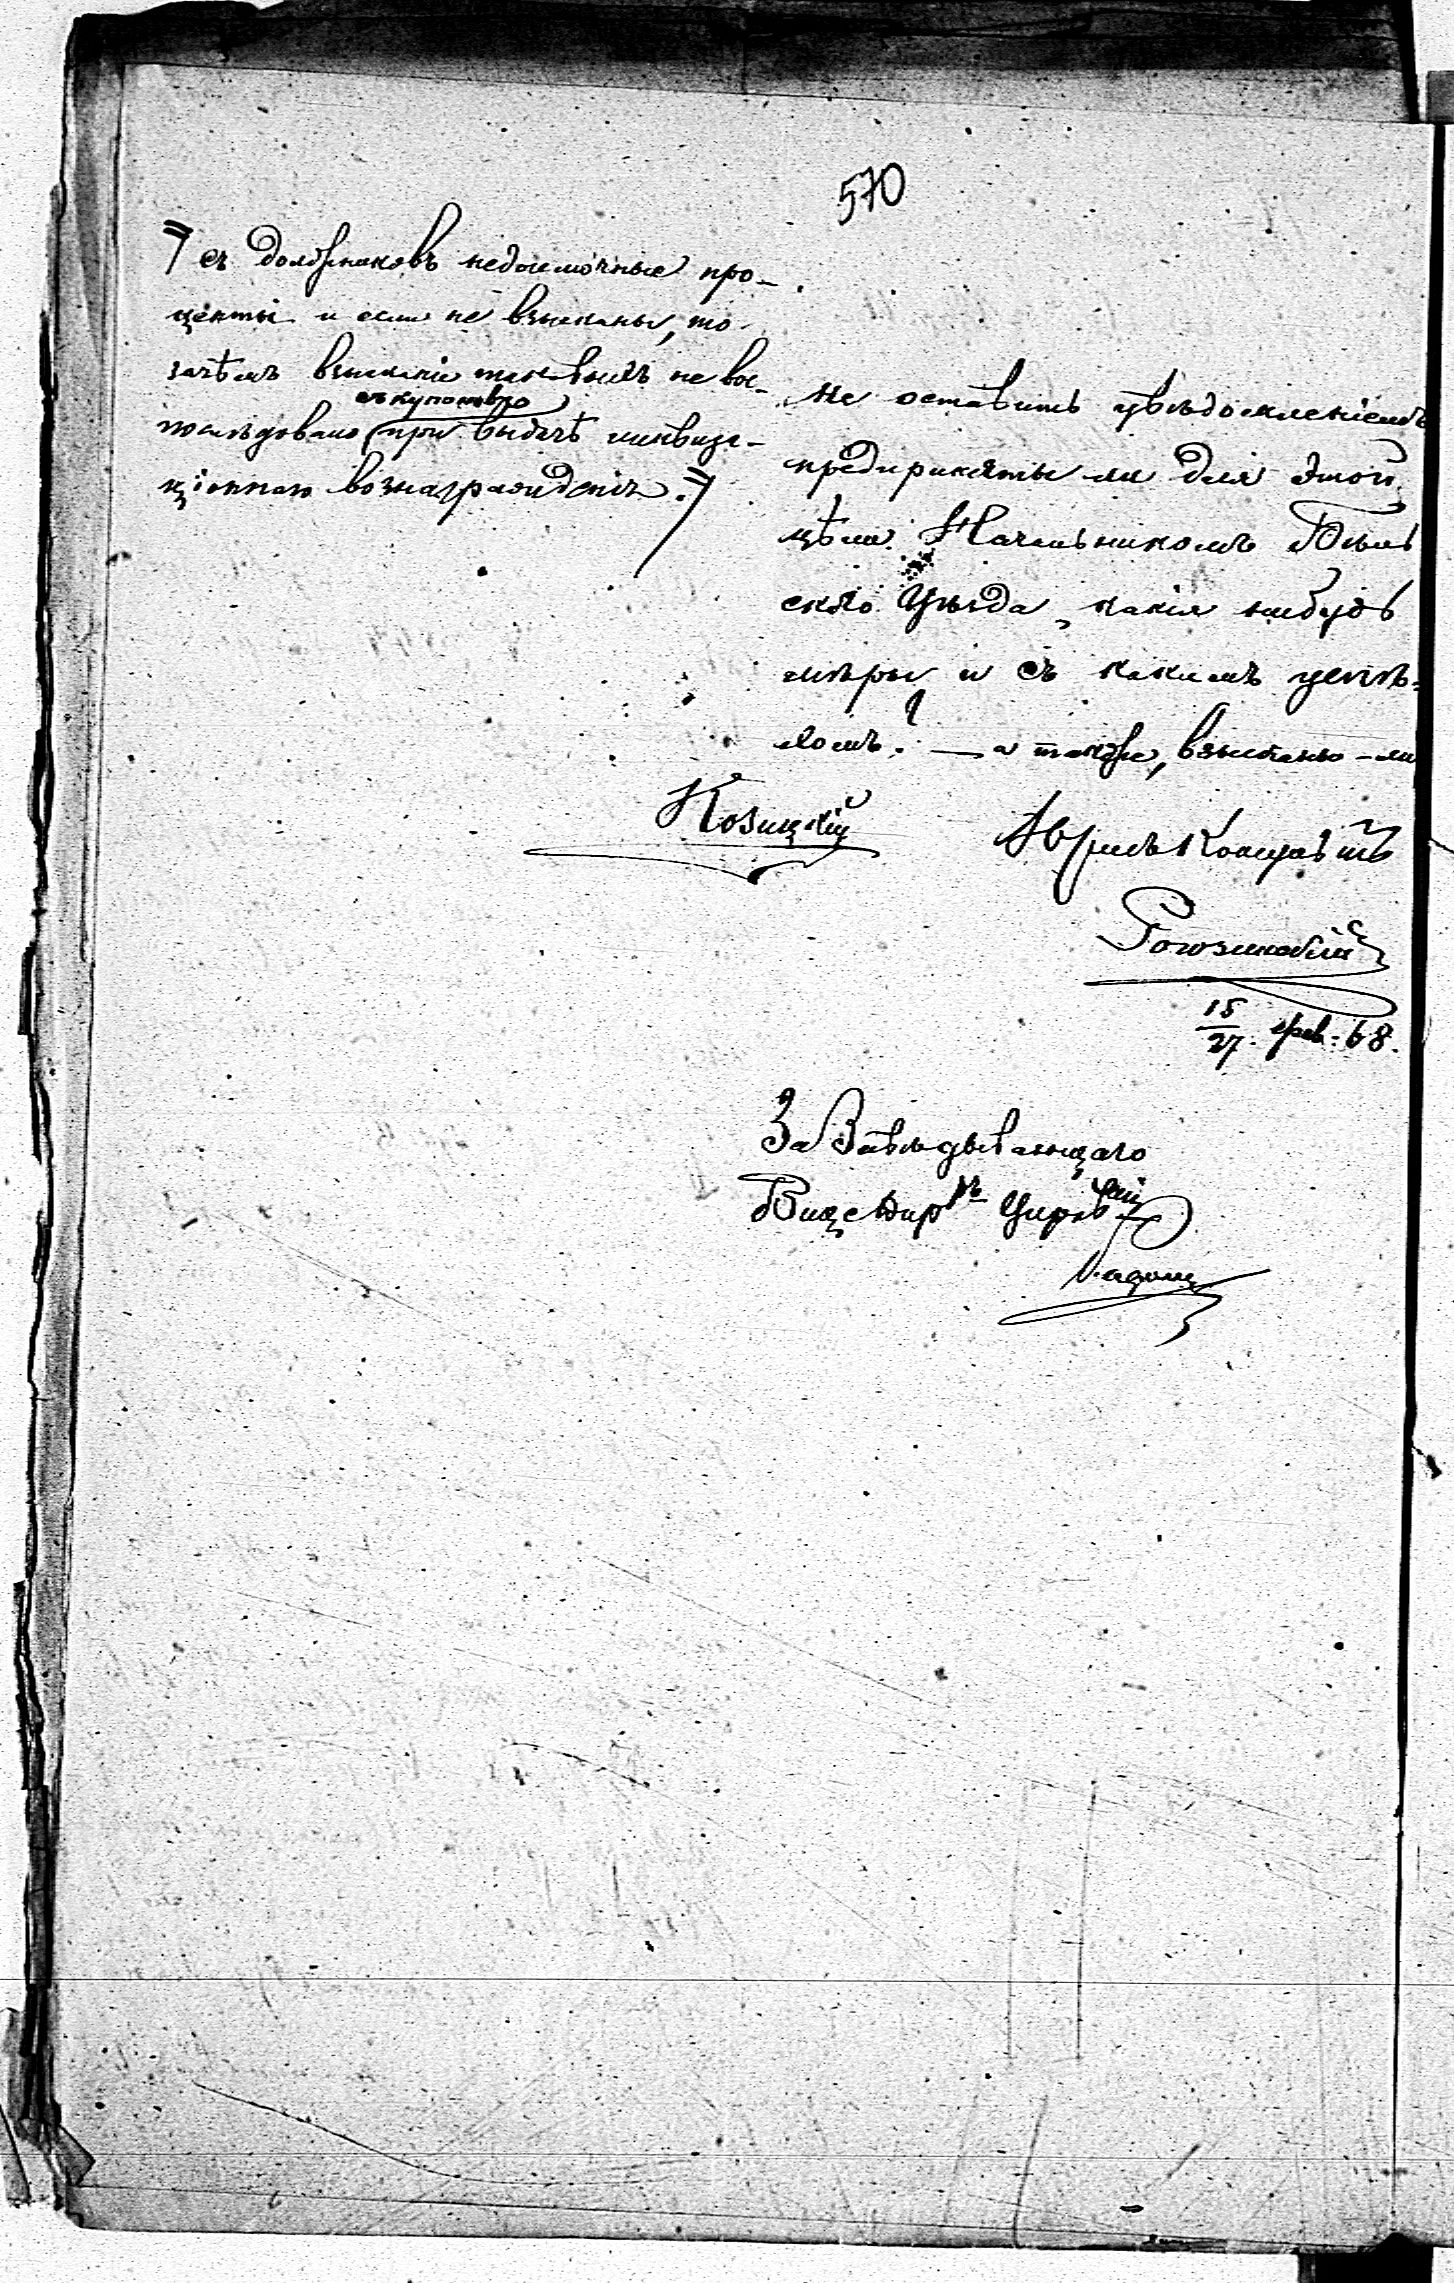 570
съ должниковъ недоимочные про-
центы и если не взысканы, то
зачѣмъ взысканіе таковыхъ не вос-
съ купоновъ
послѣдовало при выдачѣ ликвида-
ціоннаго вознагражденія.
не оставить увѣдомленіемъ
предприняты ли для этой
цѣли Начальникомъ Бѣль
скаго Уѣзда, какія нибудь
мѣры и съ какимъ успѣ-
хомъ? — а также, взысканы-ли
Козицкій
Рогозинскій
15/27 фев. 68.
За Завѣдывающаго
Вице Дир